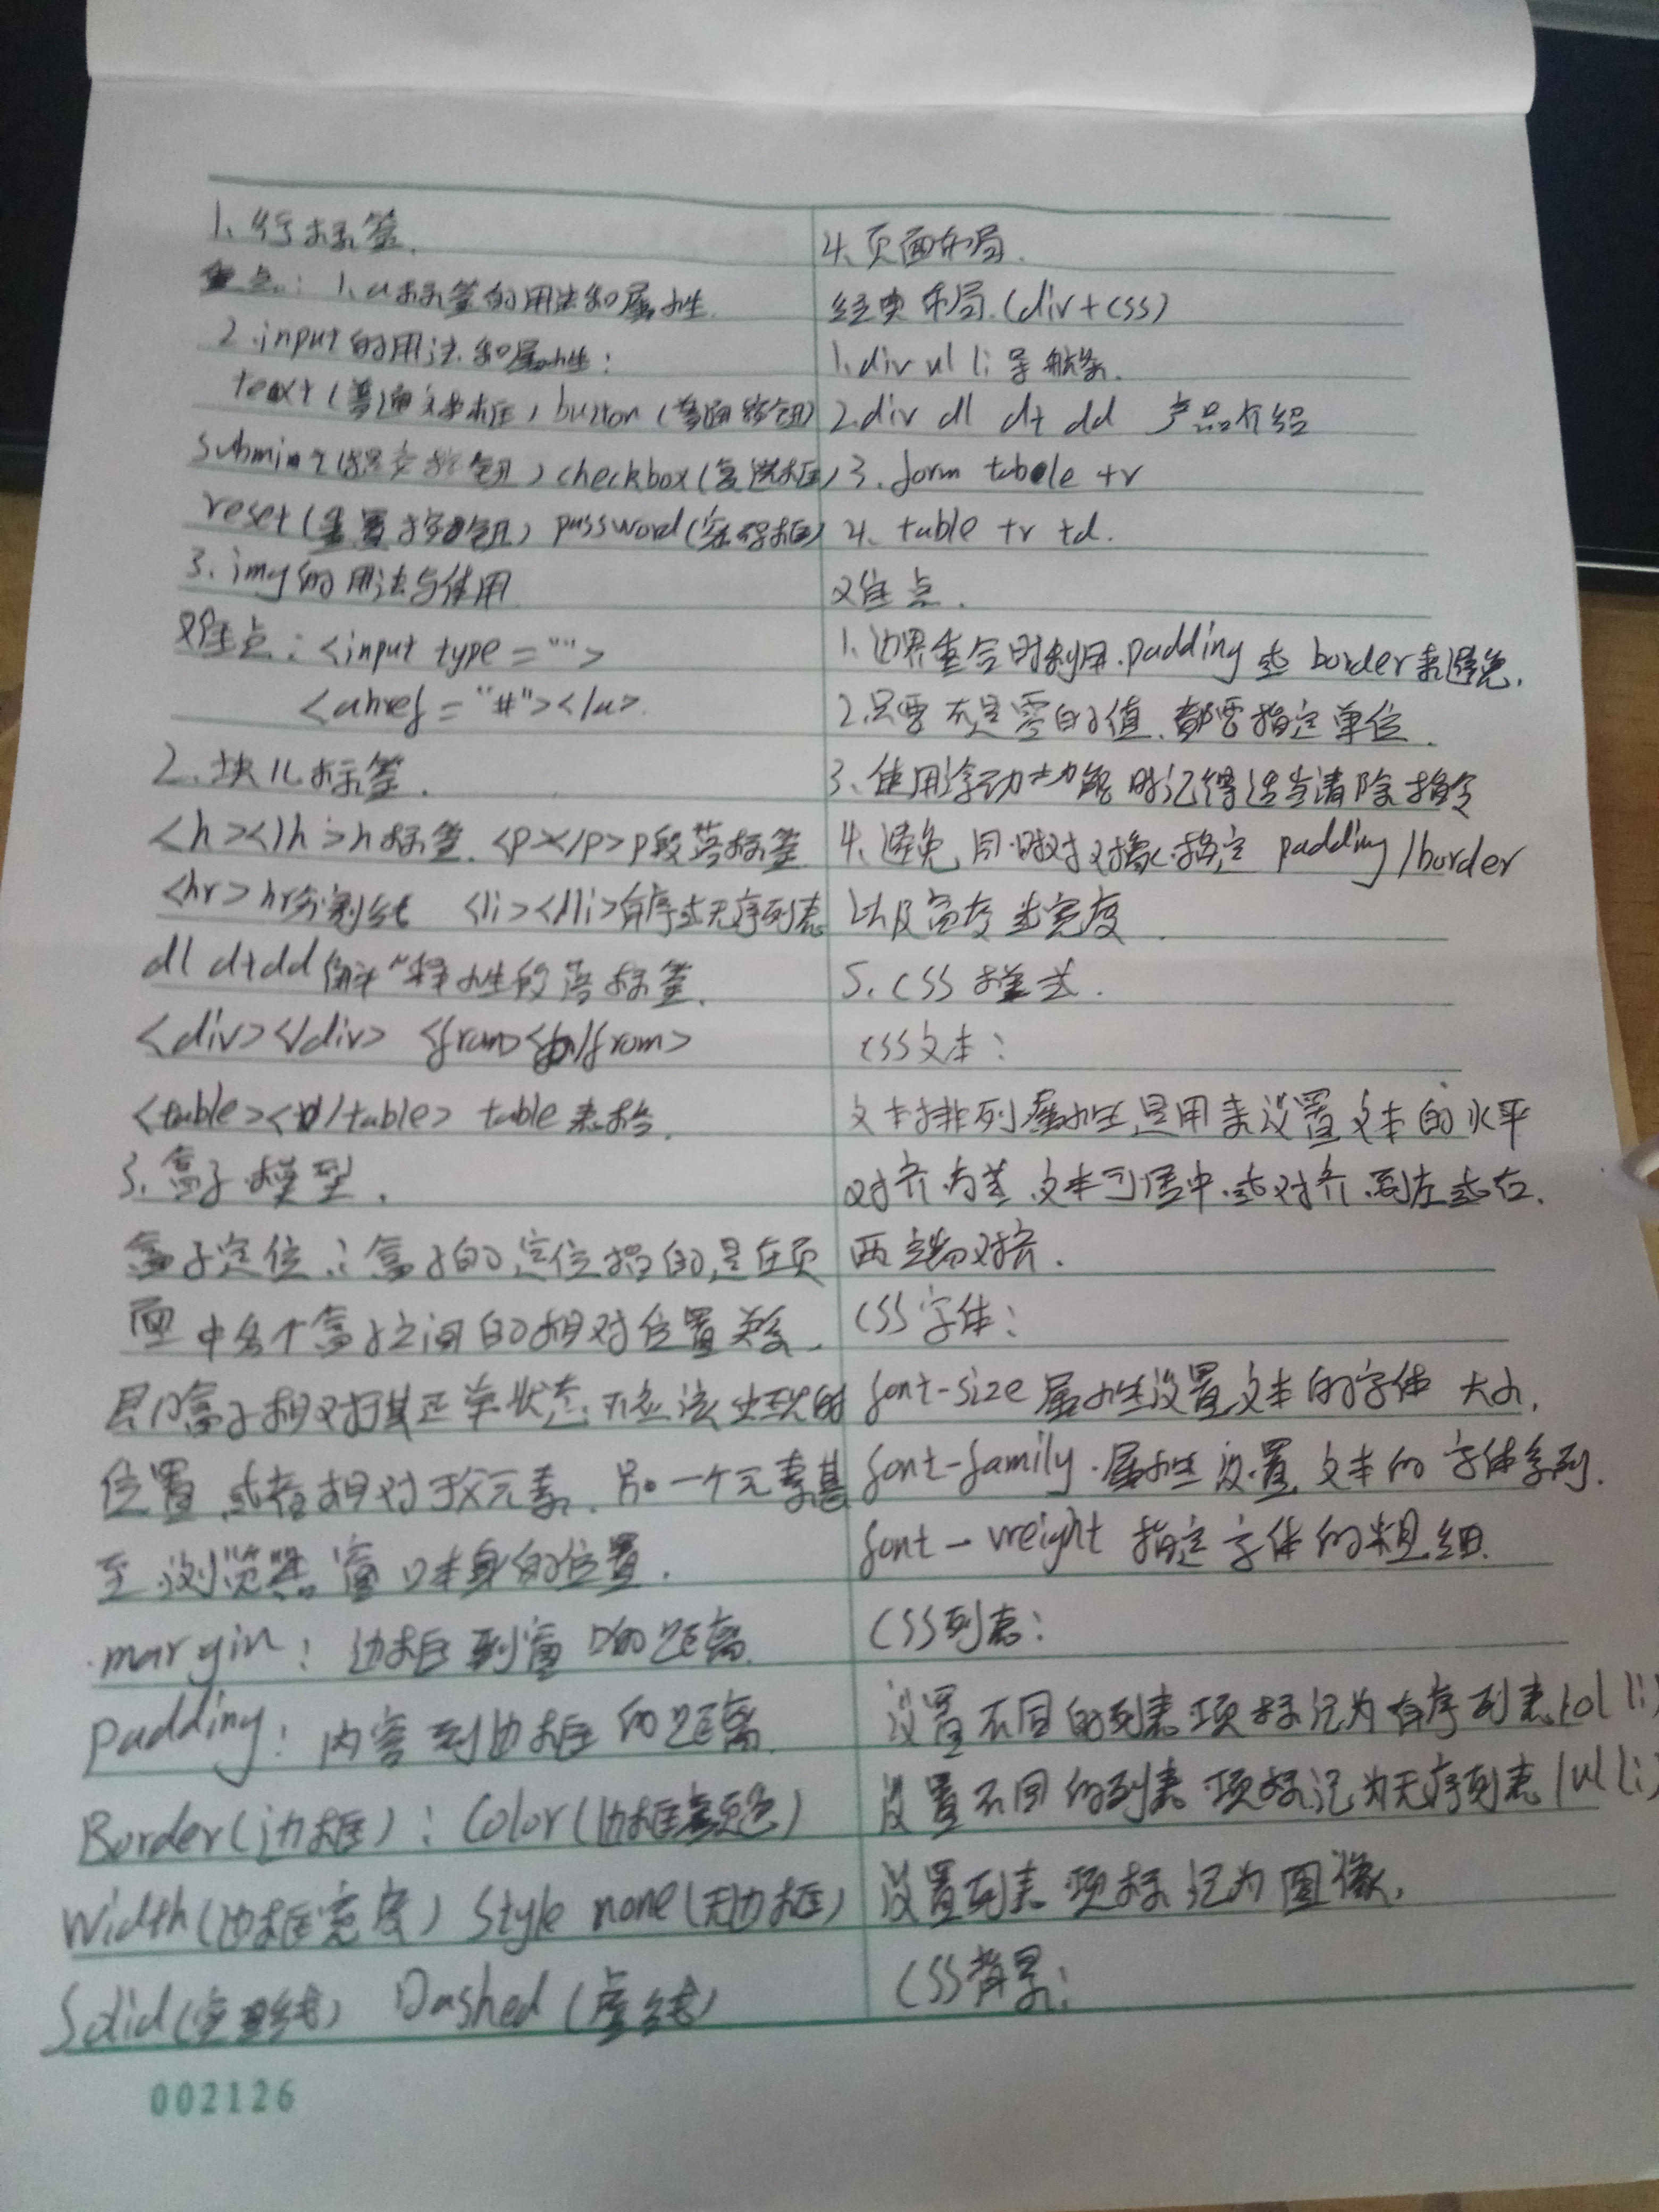 1、行标签.
重点：1、a标签的用法和属性.
2.input的用法和属性：
text(普通文本框) button(普通按钮)
submint(提交按钮) checkbox(复选框)
reset(重置按钮) password(密码框)
3.img的用法与使用
难点：<input type="">
<ahref="#"></a>.
2、块儿标签.
<h></h>h标签.<p></p>p段落标签
<hr>hr分割线 <li></li>有序或无序列表
dl dtdd解释性段落标签.
<div></div> <from></from>
<table></table> table表格.
3.盒子模型.
盒子定位：盒子的定位指的是在页
面中各个盒子之间的相对位置关系.
即盒子相对于其正常状态下应该出现的
位置,或者相对于父元素.另一个元素甚
至浏览器窗口本身的位置.
margin：边框到窗口的距离.
padding：内容到边框的距离.
Border(边框)：Color(边框颜色)
Width(边框宽度) Style none(无边框)
Solid(实线) Dashed(虚线)
002126
4、页面布局.
经典布局.(div+css)
1.div ul li 导航条.
2.div dl dt dd 产品介绍
3.form table tr
4、table tr td.
难点.
1、边界重合时利用.padding或 border来避免.
2.只要不是零的值.都要指定单位.
3、使用浮动功能时记得适当清除指令
4.避免同时对对象指定 padding/border
以及高度或宽度.
5.CSS样式.
CSS文本：
文本排列属性是用来设置文本的水平
对齐方式.文本可居中.或对齐到左或右.
两端对齐.
CSS字体：
font-size属性设置文本的字体大小,
font-family.属性设置文本的字体系列.
font-weight 指定字体的粗细.
CSS列表：
设置不同的列表项标记为有序列表(ol li)
设置不同的列表项标记为无序列表(ul li)
设置列表项标记为图像.
CSS背景：